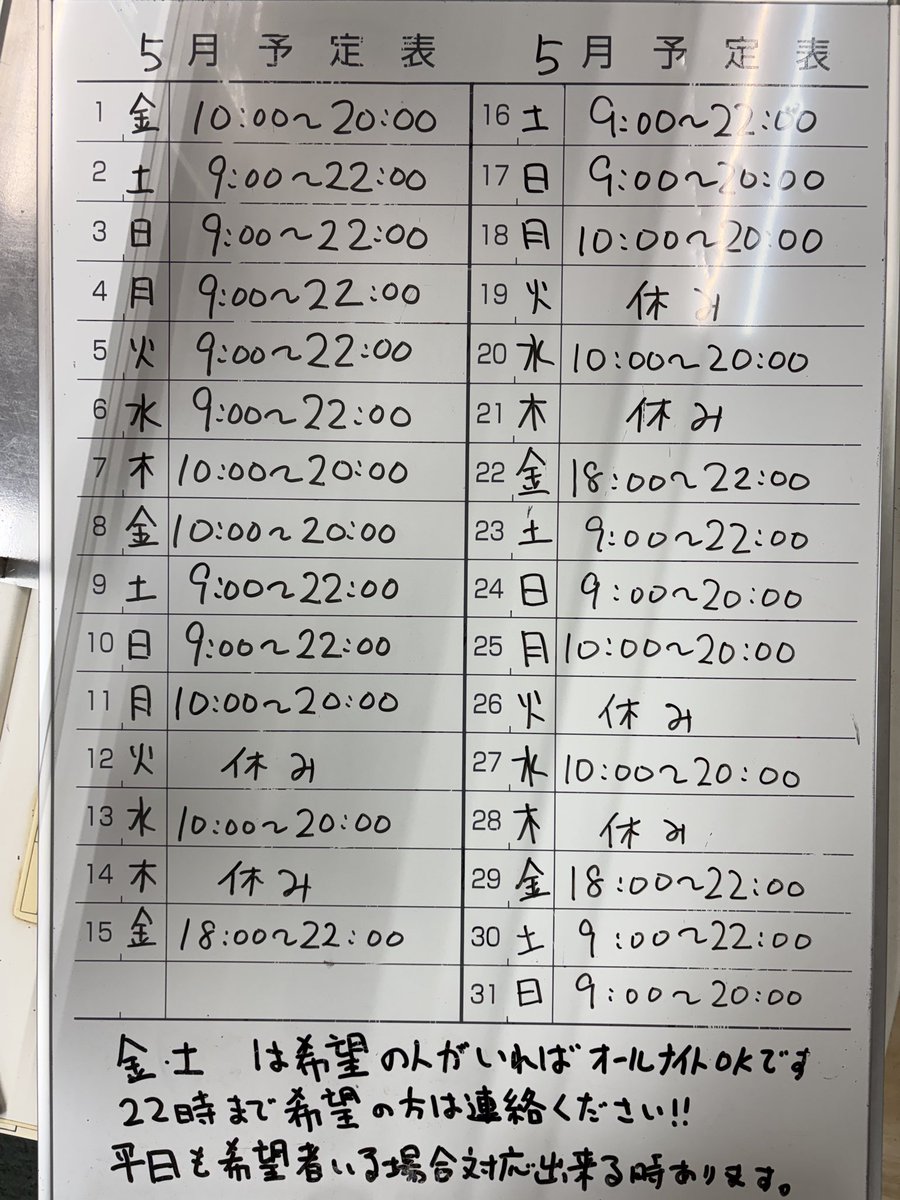 5月予定表
1 金 10:00〜20:00
2 土 9:00〜22:00
3 日 9:00〜22:00
4 月 9:00〜22:00
5 火 9:00〜22:00
6 水 9:00〜22:00
7 木 10:00〜20:00
8 金 10:00〜20:00
9 土 9:00〜22:00
10 日 9:00〜22:00
11 月 10:00〜20:00
12 火 休み
13 水 10:00〜20:00
14 木 休み
15 金 18:00〜22:00
5月予定表
16 土 9:00〜22:00
17 日 9:00〜20:00
18 月 10:00〜20:00
19 火 休み
20 水 10:00〜20:00
21 木 休み
22 金 18:00〜22:00
23 土 9:00〜22:00
24 日 9:00〜20:00
25 月 10:00〜20:00
26 火 休み
27 水 10:00〜20:00
28 木 休み
29 金 18:00〜22:00
30 土 9:00〜22:00
31 日 9:00〜20:00
金・土 は希望の人がいればオールナイトOKです
22時まで希望の方は連絡ください!!
平日も希望者いる場合対応出来る時あります。